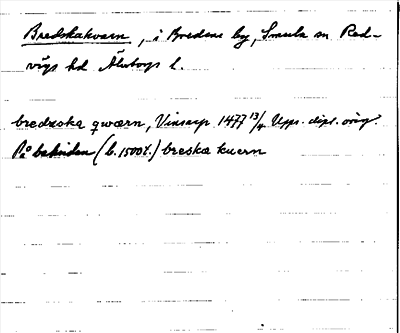 Bredskakvarn, i Bredene by, Smula sn Red-
vägs hd Älvsborgs l.
bredzska qwærn, Vinsarp 1477 13/4 Upps. dipl. orig.
På baksidan (b. 1500t.) breska kuern